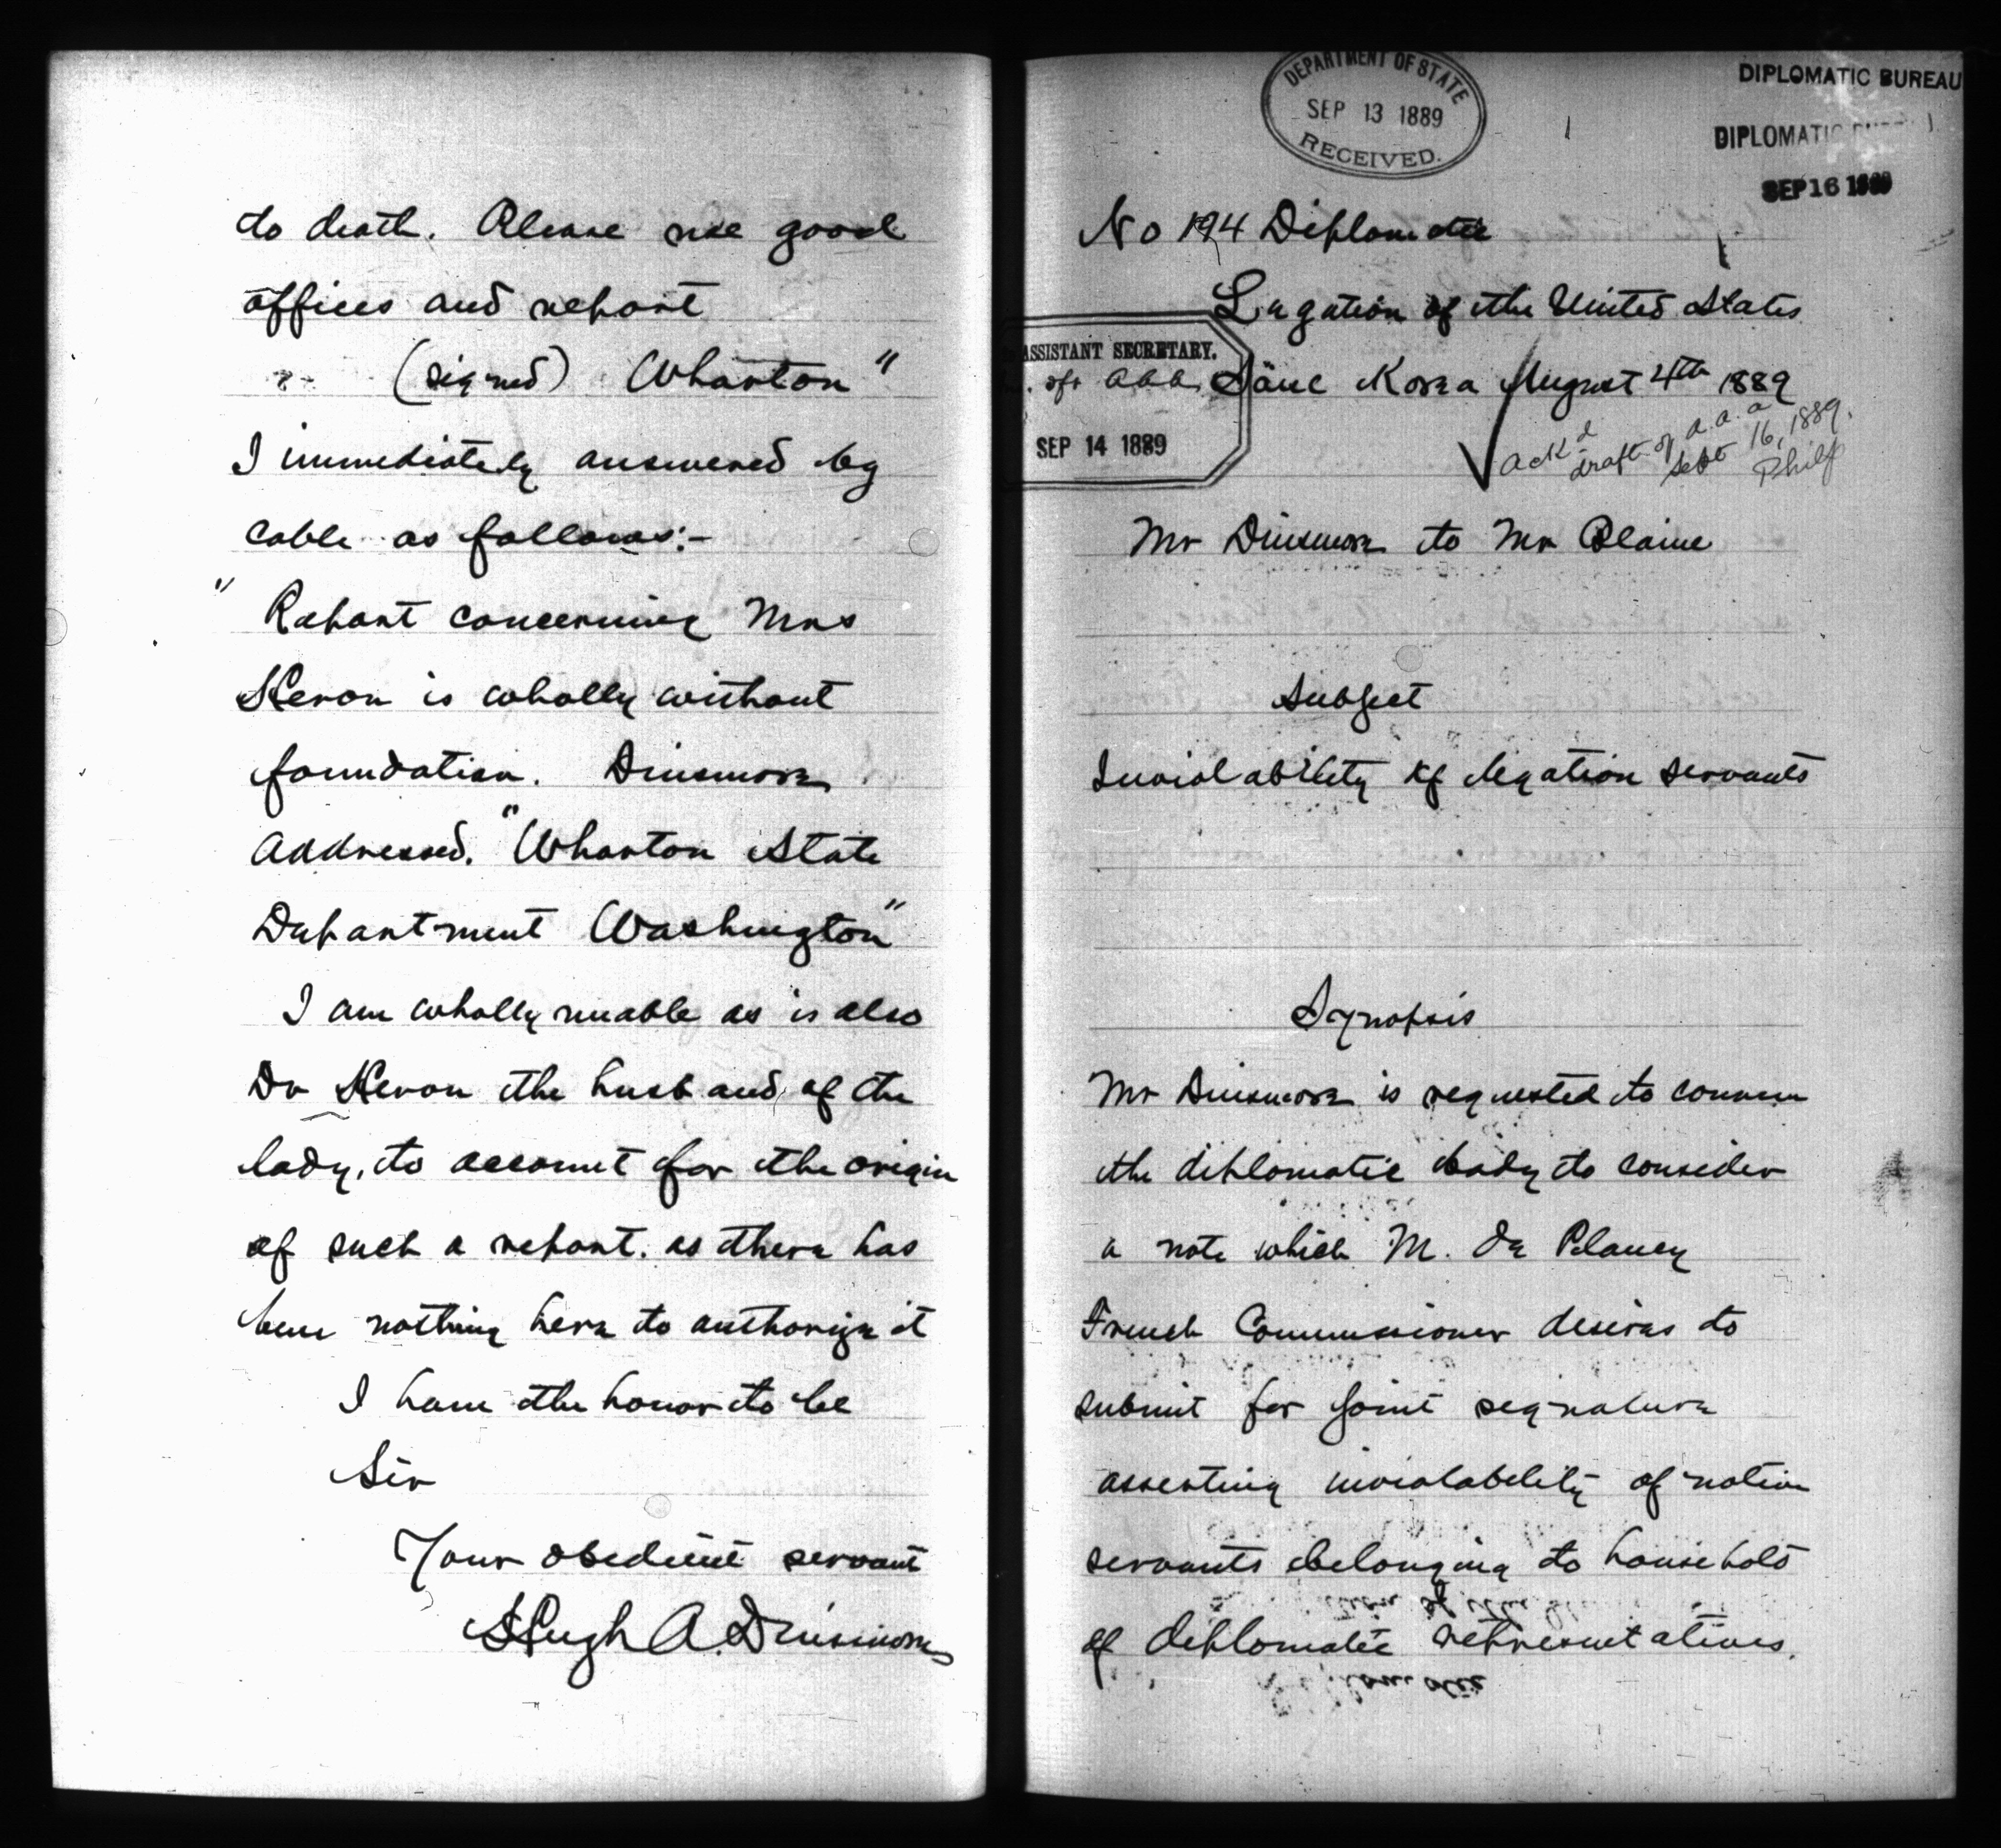 to death. Please use good
offices and report
(signed) Wharton"
I immediately answered by
cable as follows:-
" Report concerning Mrs
Heron is wholly without
foundation. Dinsmore
Addressed. "Wharton State
Department Washington"
I am wholly unable as is also
Dr Heron the husband of the
lady, to account for the origin
of such a report. as there has
been nothing here to authorize it
I have the honor to be
Sir
Your obedient servant
Hugh A. Dinsmore
DEPARTMENT OF STATE
SEP 13 1889
RECEIVED.
DIPLOMATIC BUREAU
DIPLOMATIC
SEP 16 1889
No 194 Diplomatic
Legation of the United States
ASSISTANT SECRETARY.
SEP 14 1889
Söul Korea August 4th 1889
ackd
draft of a.a.a
Sept 16, 1889.
Philip
Mr Dinsmore to Mr Blaine
Subject
Inviolability of legation servants
Synopsis
Mr Dinsmore is requested to convene
the diplomatic body to consider
a note which M. de Plancy
French Commissioner desires to
submit for joint signature
asserting inviolability of native
servants belonging to household
of diplomatic representatives.